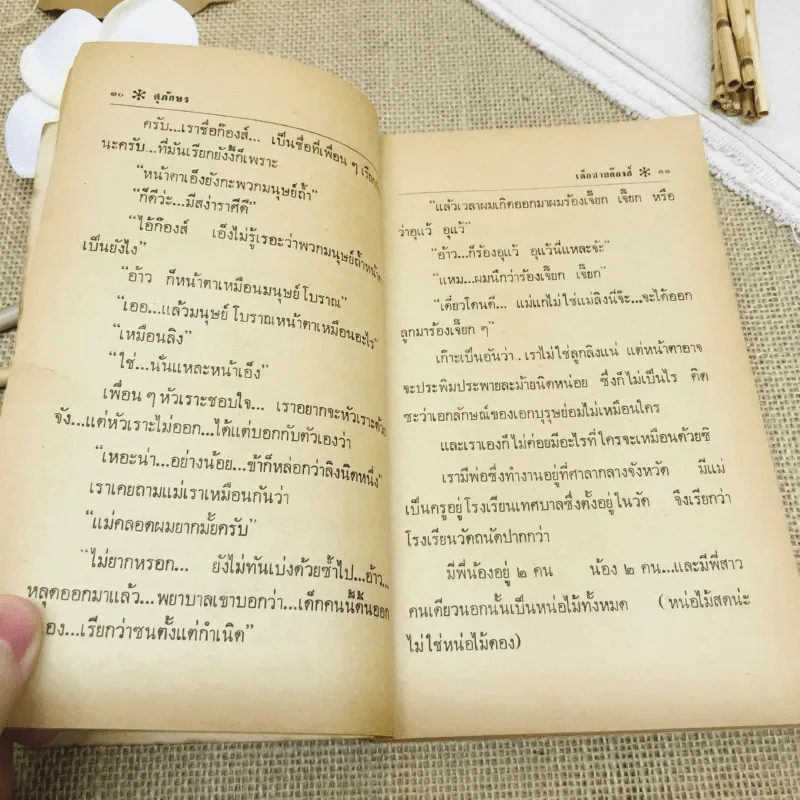 ๑๐ * สุภักษร
ครับ...เราชื่อก๊องส์... เป็นชื่อที่เพื่อน ๆ
นะครับ...ที่มันเรียกยังงี้ก็เพราะ
“หน้าตาเอ็งยังกะพวกมนุษย์ถ้ำ”
“ก็ดีว่ะ...มีสง่าราศีดี”
“ไอ้ก๊องส์ เอ็งไม่รู้เรอะว่าพวกมนุษย์ถ้ำ
เป็นยังไง”
“อ้าว ก็หน้าตาเหมือนมนุษย์โบราณ”
“เออ...แล้วมนุษย์โบราณหน้าตาเหมือนอะไร”
“เหมือนลิง”
“ใช่...นั่นแหละหน้าเอ็ง”
เพื่อน ๆ หัวเราะชอบใจ... เราอยากจะหัวเราะด้วย
จัง...แต่หัวเราะไม่ออก...ได้แต่บอกกับตัวเองว่า
“เหอะน่า...อย่างน้อย...ข้าก็หล่อกว่าลิงนิดหนึ่ง”
เราเคยถามแม่เราเหมือนกันว่า
“แม่คลอดผมยากมั้ยครับ”
“ไม่ยากหรอก... ยังไม่ทันเบ่งด้วยซ้ำไป...อ้าว...
หลุดออกมาแล้ว...พยาบาลเขาบอกว่า...เด็กคนนี้ดันออก
เอง...เรียกว่าซนตั้งแต่กำเนิด”
เด็กชายก๊องส์ * ๑๑
“แล้วเวลาผมเกิดออกมาผมร้องเจี๊ยก เจี๊ยก หรือ
ว่าอุแว้ อุแว้”
“อ้าว...ก็ร้องอุแว้ อุแว้นี่แหละจ้ะ”
“แหม...ผมนึกว่าร้องเจี๊ยก เจี๊ยก”
“เดี๋ยวโดนดี... แม่แกไม่ใช่แม่ลิงนี่จ๊ะ...จะได้ออก
ลูกมาร้องเจี๊ยก ๆ”
เก๊าะเป็นอันว่า..เราไม่ใช่ลูกลิงแน่ แต่หน้าตาอาจ
จะประพิมประพายละม้ายนิดหน่อย ซึ่งก็ไม่เป็นไร คิด
ซะว่าเอกลักษณ์ของเอกบุรุษย่อมไม่เหมือนใคร
และเราเองก็ไม่ค่อยมีอะไรที่ใครจะเหมือนด้วยซิ
เรามีพ่อซึ่งทำงานอยู่ที่ศาลากลางจังหวัด มีแม่
เป็นครูอยู่โรงเรียนเทศบาลซึ่งตั้งอยู่ในวัด จึงเรียกว่า
โรงเรียนวัดถนัดปากกว่า
มีพี่น้องอยู่ ๒ คน น้อง ๒ คน...และมีพี่สาว
คนเดียวนอกนั้นเป็นหน่อไม้ทั้งหมด (หน่อไม้สดน่ะ
ไม่ใช่หน่อไม้ดอง)